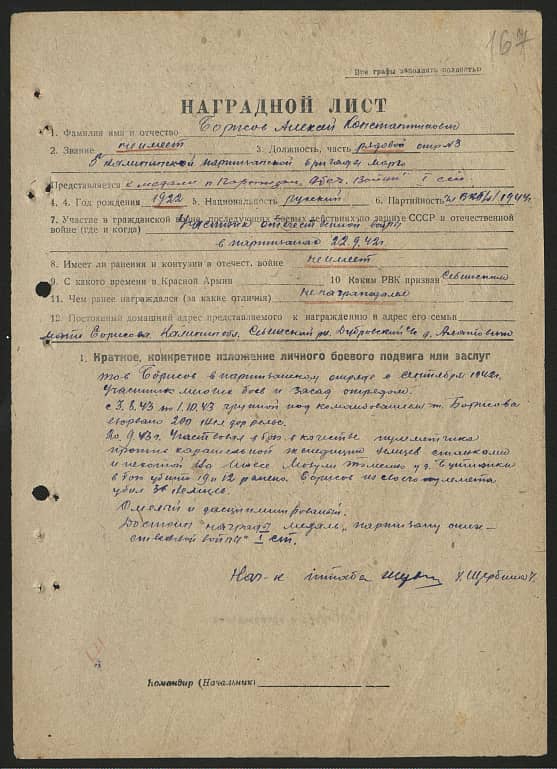 167
Все графы заполнять полностью
НАГРАДНОЙ ЛИСТ
1. Фамилия имя и отчество Борисов Алексей Константинович
2. Звание не имеет 3. Должность, часть рядовой отр. №3
Калининской партизанской бригады
Представляется к медали
4. 4. Год рождения 1922 5. Национальность русский 6. Партийность 1944г.
7. Участие в гражданской войне, последующих боевых действиях по защите СССР и отечественной
войне (где и когда) Участник отечественной войны
в партизанах 22.9.42г.
8. Имеет ли ранения и контузии в отечест. войне не имеет
9. С какого времени в Красной Армии 10 Каким РВК призван Себежским
11. Чем ранее награждался (за какие отличия) не награждался
12. Постоянный домашний адрес представляемого к награждению и адрес его семьи
мать Борисова, Калинин. обл. Себежский р-н, Дубровский с/с д.
1. Краткое, конкретное изложение личного боевого подвига или заслуг
тов Борисов в партизанском отряде с сентября 1942г.
Участник многих боев и засад отрядом.
с 3.8.43 по 1.10.43 группой под командованием т. Борисова
взорвано 200 жел дор рельс.
20.9.43г. Участвовал в бою в качестве пулеметчика
против карательной экспедиции немцев
и пехотой на шоссе у д.
в бою убито 19 и 12 ранено. Борисов из своего пулемета
убил 3х немцев.
Смелый и дисциплинированый.
Достоин награды медаль „партизану отече-
ственной войны" I ст.
Нач-к штаба /Щербина/
Командир (Начальник)